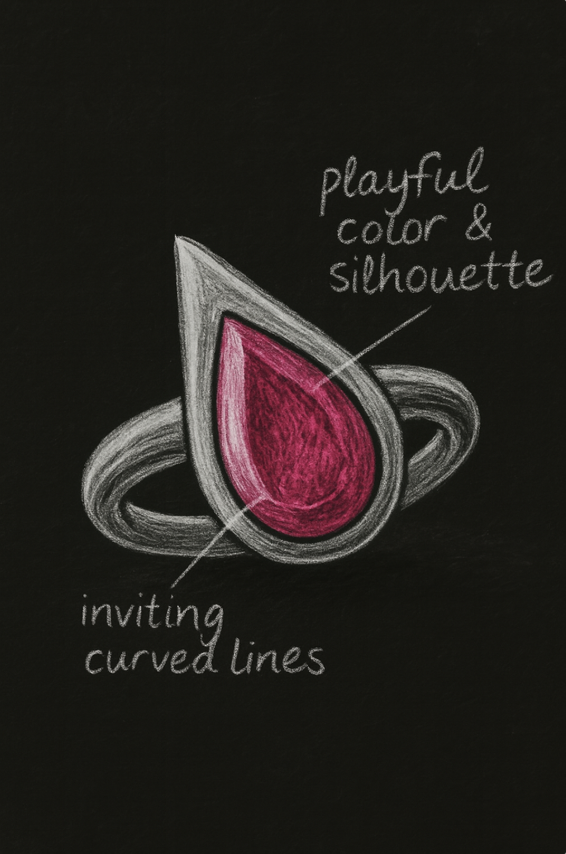 playful
color &
silhouette
inviting
curved lines